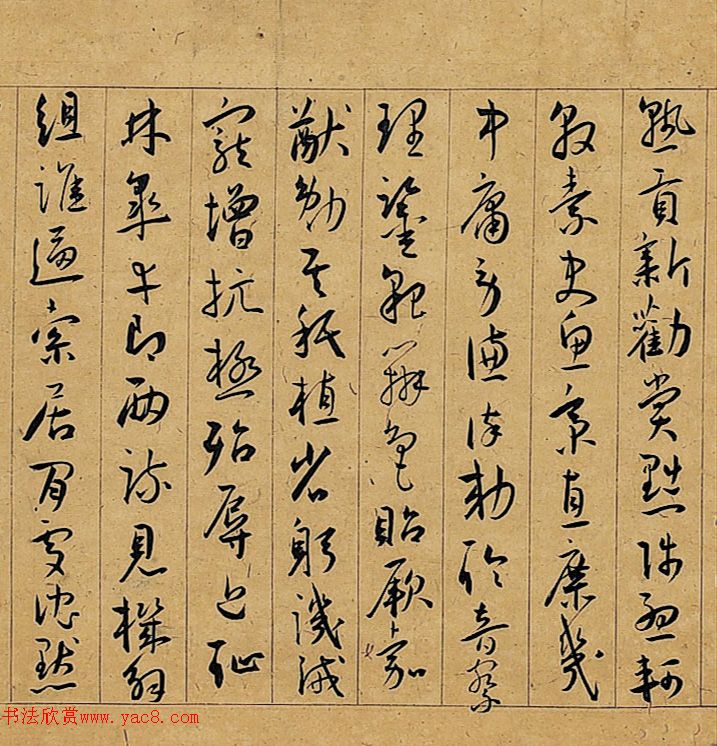 熟貢新勸賞黜陟孟軻
敦素史魚秉直庶幾
中庸勞謙謹勅聆音察
理鑒貌辨色貽厥嘉
猷勉其祗植省躬譏誡
寵增抗極殆辱近恥
林皋幸即兩疏見機解
組誰逼索居閒處沈默
书法欣赏www.yac8.com